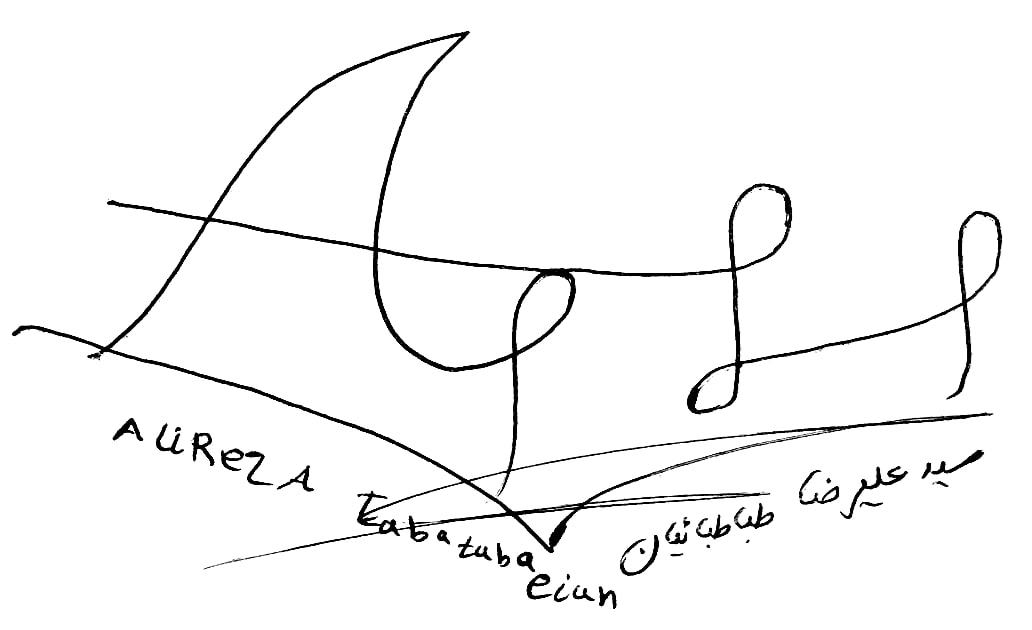 ALiReZA
Tabatabaeian
سید علیرضا
طباطبائیان